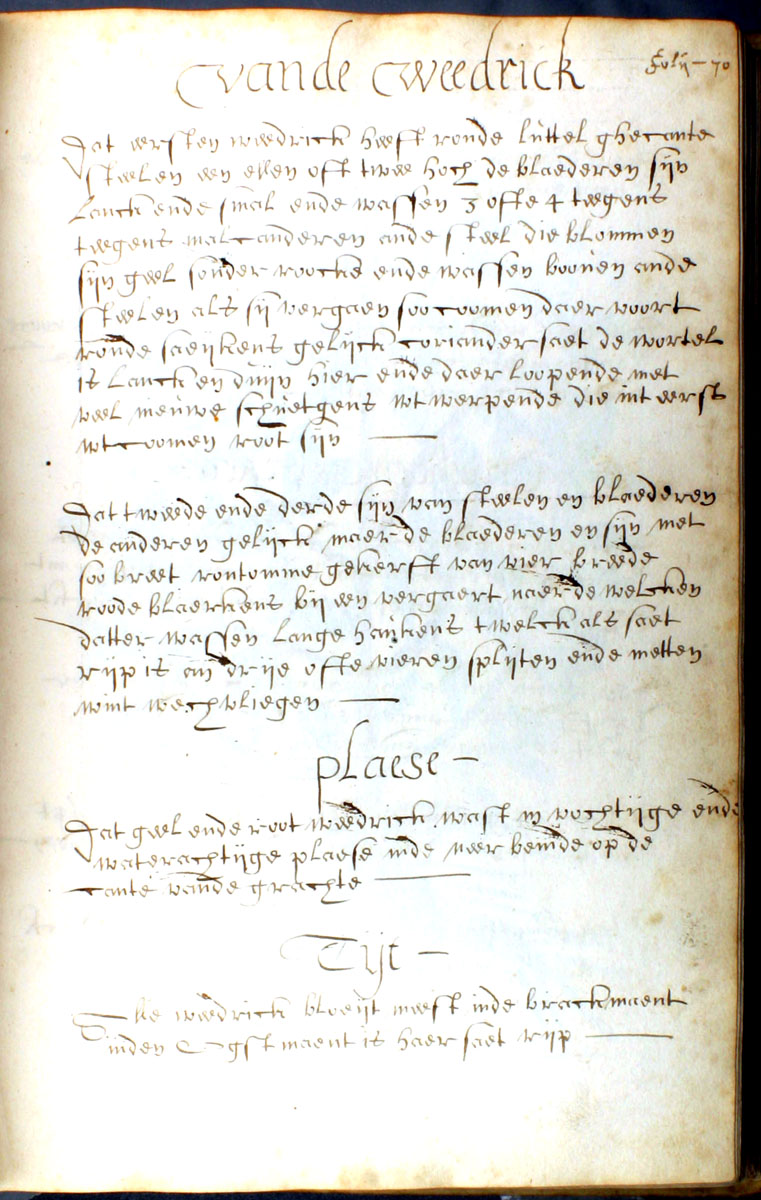 vande weedrick
Folij – 70
Dat eersten weedrick heeft ronde luttel ghecante
steelen een ellen oft twee hoch de blaederen sijn
lanck ende smal ende wassen 3 ofte 4 teegens
teegens malcanderen ande steel die blommen
sijn geel sonder roocke ende wassen booven ande
steelen als sij vergaen soo coomen daer voort
ronde saeijkens gelijck coriander saet de wortel
is lanck en duijn hier ende daer loopende met
veel nieuwe schuetgens wtwerpende die int eerst
wtcoomen root sijn
Dat tweede ende derde sijn van steelen en blaederen
de anderen gelijck maer de blaederen en sijn met
soo breet rontomme gekerft van vier breede
roode blaerkens bij een vergaert naer de welcken
datter wassen lange haukens twelck als saet
rijp is an drije ofte vieren splijten ende metten
wint wechvliegen
plaese –
Dat geel ende root weedrick wast in vochtijge ende
waterachtijge plaese inde neer beinde op de
cante vande grachte
Tijt –
Alle weedrick bloeijt meest inde brackmaent
inden Ogstmaent is haer saet rijp